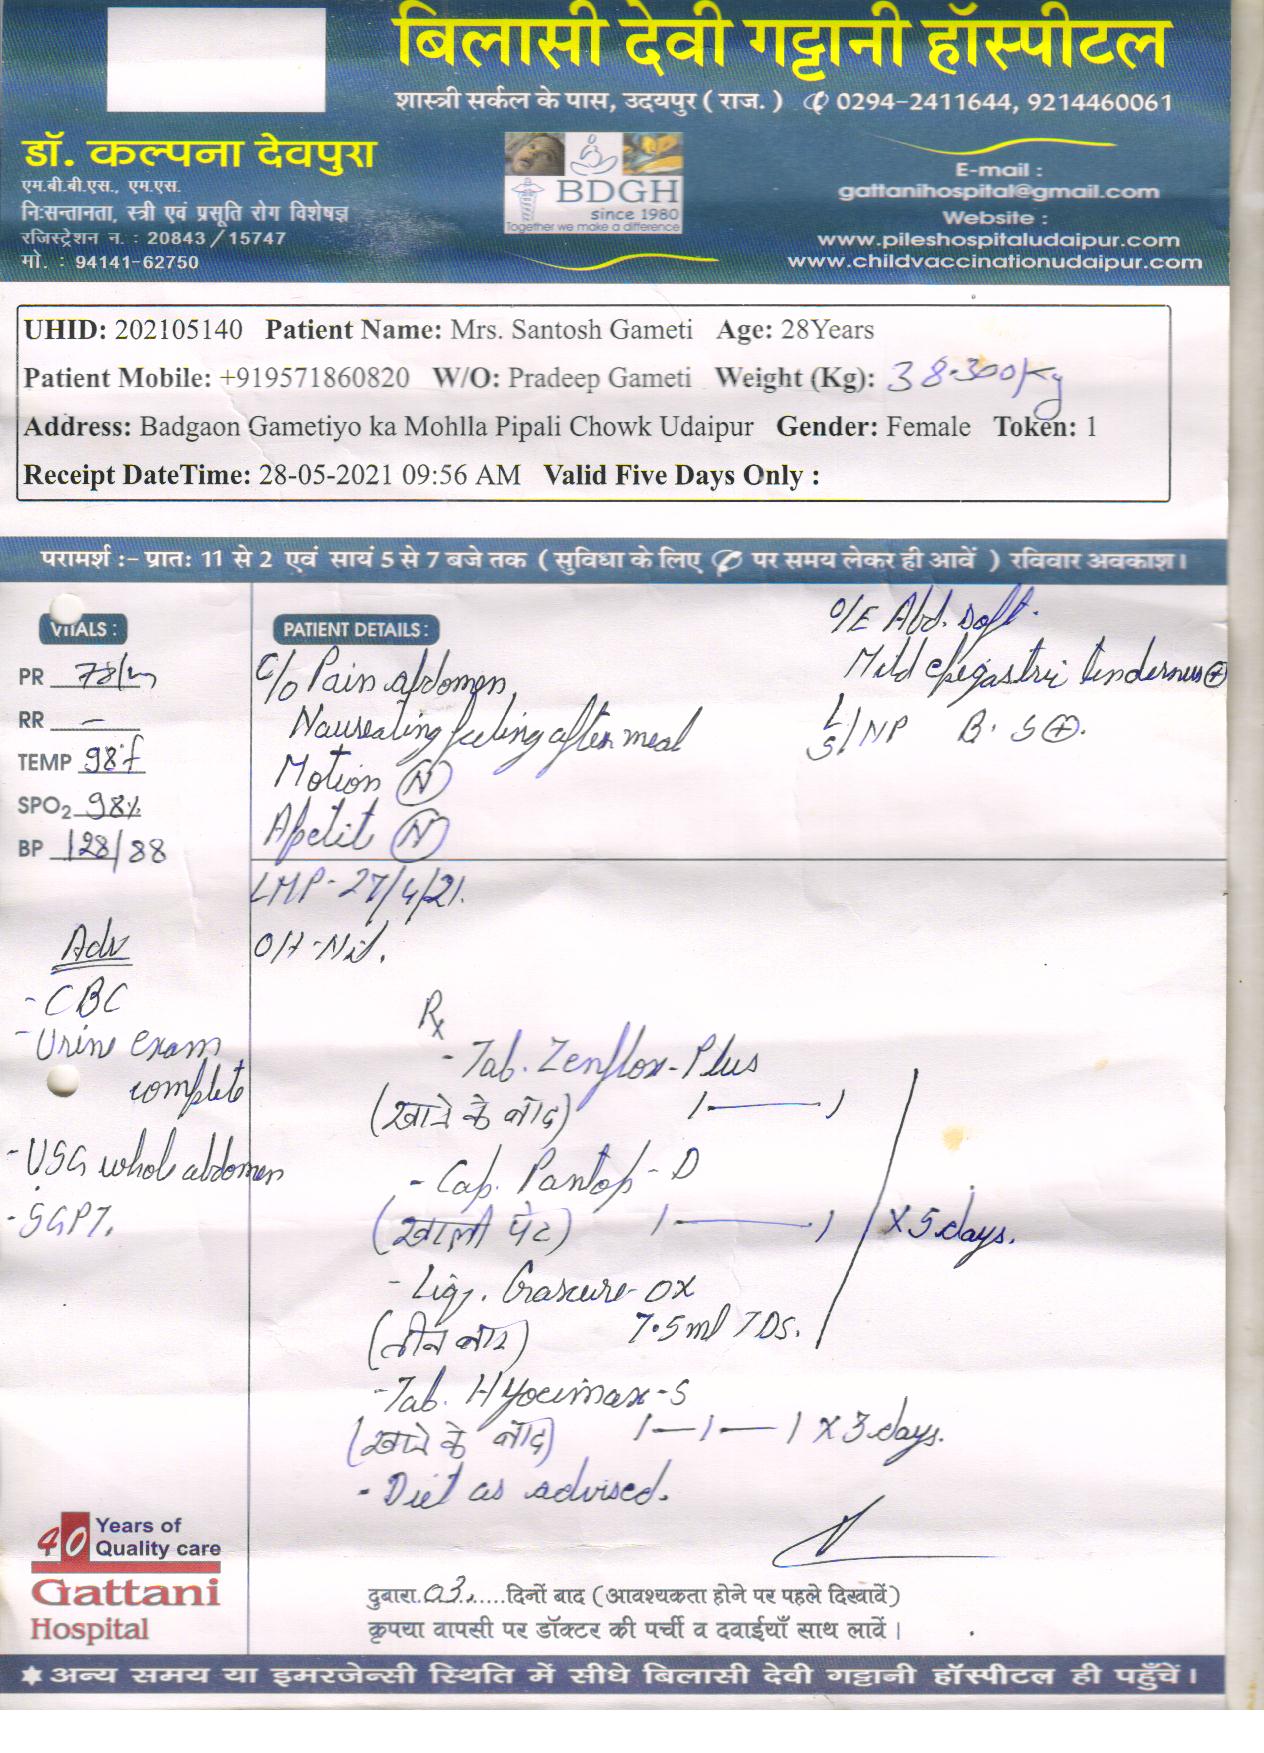 बिलासी देवी गट्टानी हॉस्पीटल
शास्त्री सर्कल के पास, उदयपुर ( राज. ) ✆ 0294-2411644, 9214460061
डॉ. कल्पना देवपुरा
एम.बी.बी.एस., एम.एस.
निःसन्तानता, स्त्री एवं प्रसूति रोग विशेषज्ञ
रजिस्ट्रेशन न. : 20843 / 15747
मो. : 94141-62750
BDGH
since 1980
Together we make a difference
E-mail :
gattanihospital@gmail.com
Website :
www.pileshospitaludaipur.com
www.childvaccinationudaipur.com
UHID: 202105140 Patient Name: Mrs. Santosh Gameti Age: 28Years
Patient Mobile: +919571860820 W/O: Pradeep Gameti Weight (Kg): 38.300kg
Address: Badgaon Gametiyo ka Mohlla Pipali Chowk Udaipur Gender: Female Token: 1
Receipt DateTime: 28-05-2021 09:56 AM Valid Five Days Only :
परामर्श :- प्रातः 11 से 2 एवं सायं 5 से 7 बजे तक ( सुविधा के लिए ✆ पर समय लेकर ही आवें ) रविवार अवकाश।
VITALS :
PR 78/m
RR -
TEMP 98°f
SPO2 98%
BP 128/88
PATIENT DETAILS :
C/o Pain abdomen,
Nauseating feeling after meal
Motion (N)
Apetit (N)
O/E Abd. soft.
Mild epigastric tenderness (+)
L/S/NP B.S (+).
LMP- 27/4/21.
O/H - Nil.
Adv
- CBC
- Urine exam
complete
- USG whole abdomen
- SGPT.
Rx
- Tab. Zenflox-Plus
(खाने के बाद) 1 —— 1
- Cap. Pantop-D
(खाली पेट) 1 —— 1
x 5 days.
- Liq. Gascure-OX
(तीन बार) 7.5ml TDS.
- Tab. Hyocimax-S
(खाने के बाद) 1 — 1 — 1 x 3 days.
- Diet as advised.
40 Years of
Quality care
Gattani
Hospital
दुबारा. 03......दिनों बाद ( आवश्यकता होने पर पहले दिखावें )
कृपया वापसी पर डॉक्टर की पर्ची व दवाईयाँ साथ लावें।
✶ अन्य समय या इमरजेन्सी स्थिति में सीधे बिलासी देवी गट्टानी हॉस्पीटल ही पहुँचें।